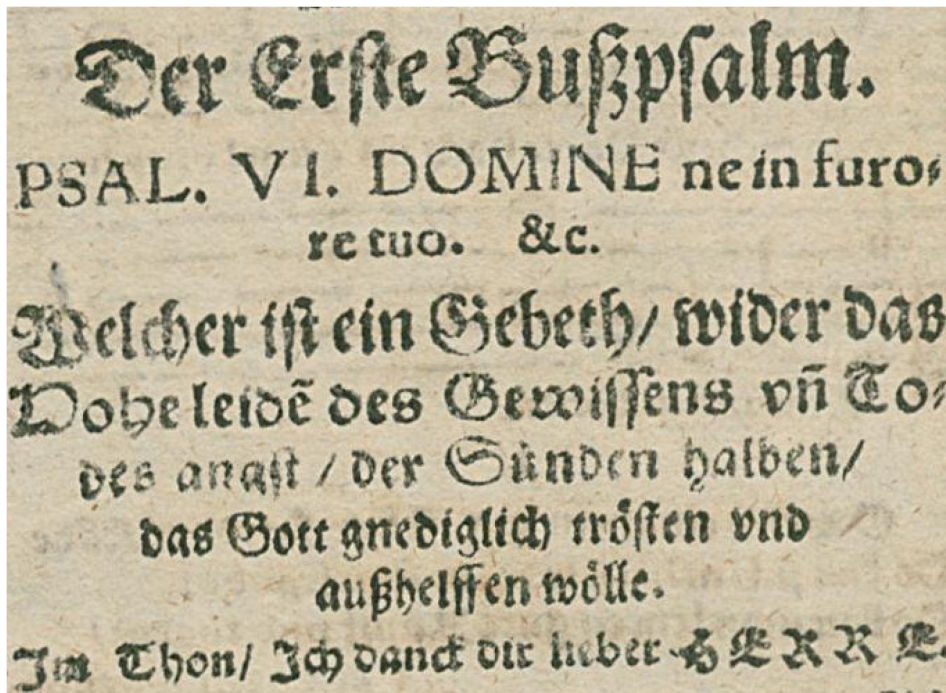 Der Erste Bußpsalm.
PSAL. VI. DOMINE ne in furo⸗
re tuo. &c.
Welcher ist ein Gebeth/ wider das
Hohe leidẽ des Gewissens vñ To⸗
des angst / der Sünden halben/
das Gott gnediglich trösten vnd
außhelffen wölle.
Im Thon/ Ich danck dir lieber HERRE.